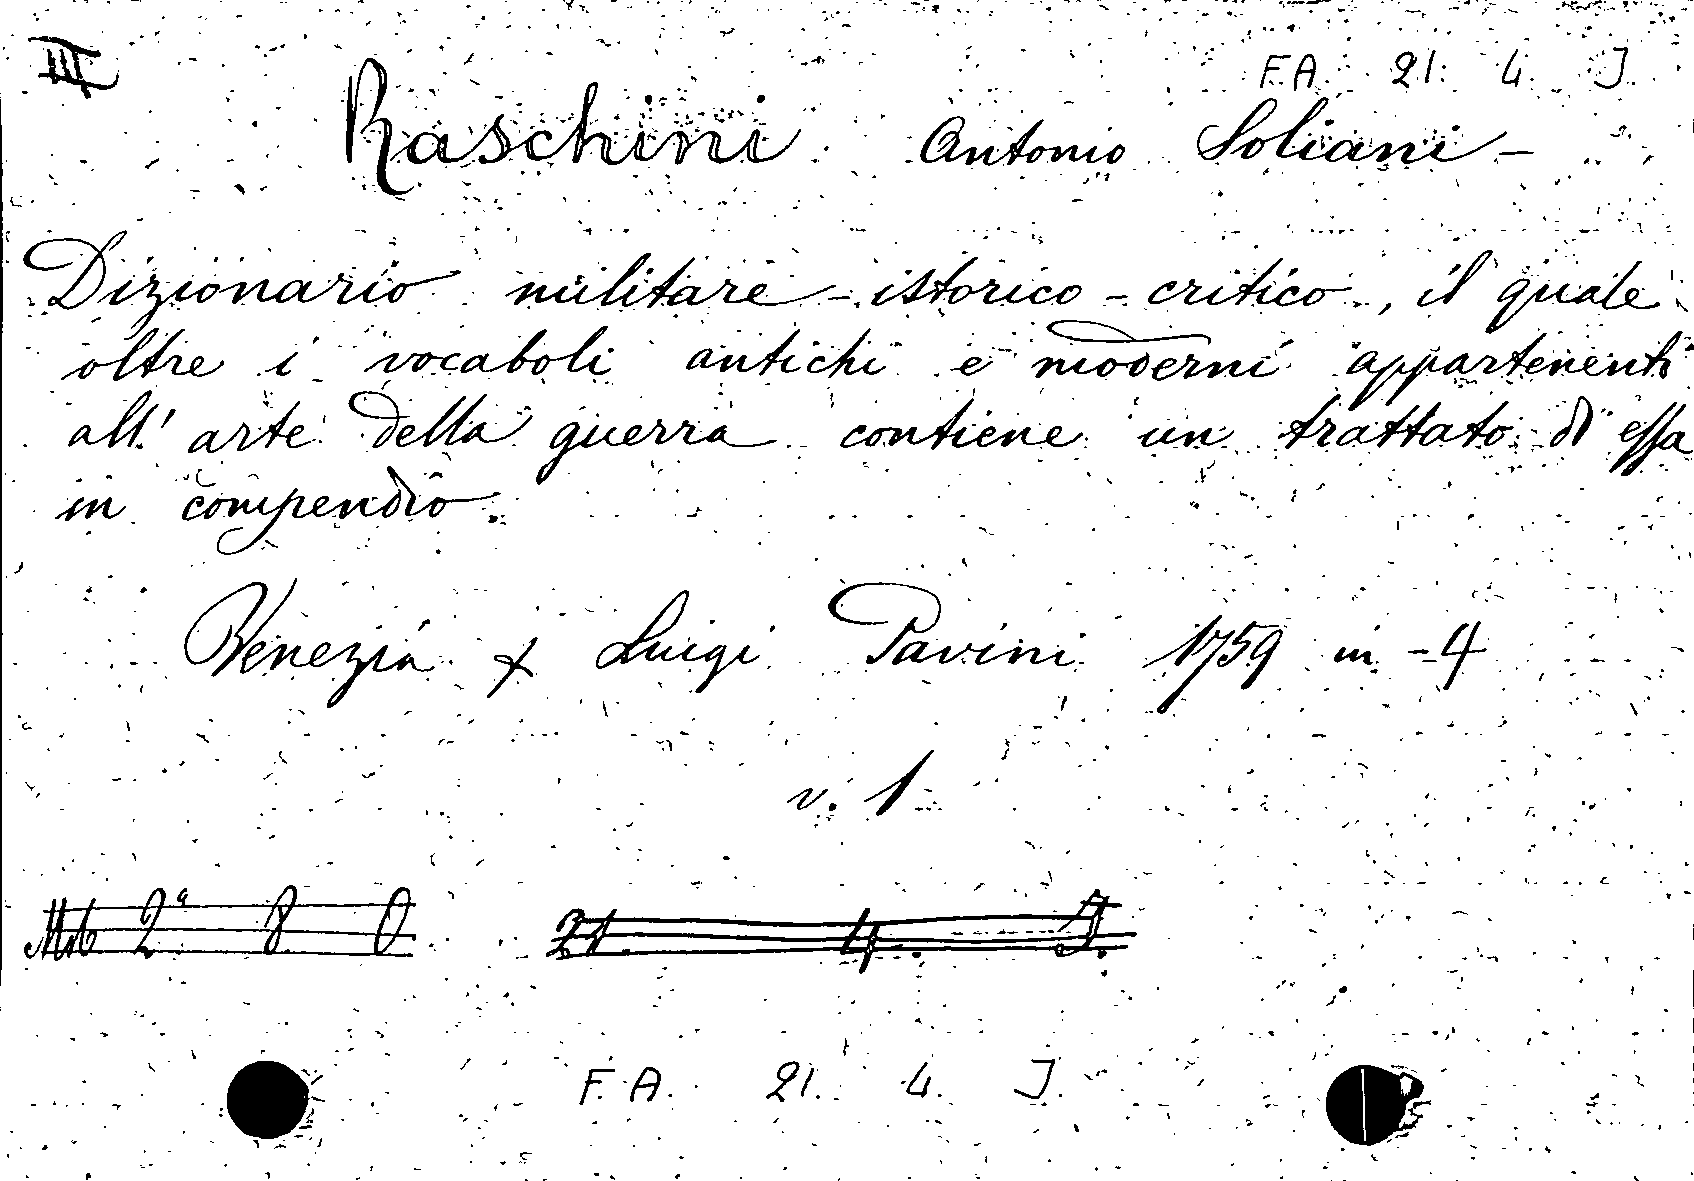 III F.A. 21. 4. J.
Raschini Antonio Soliani -
Dizionario militare - istorico - critico, il quale
oltre i vocaboli antichi e moderni appartenenti
all' arte della guerra contiene un trattato di essa
in compendio.
Venezia x Luigi Pavini 1759 in - 4
v. 1
2ª 8 0 21. 4. J.
F.A. 21. 4. J.